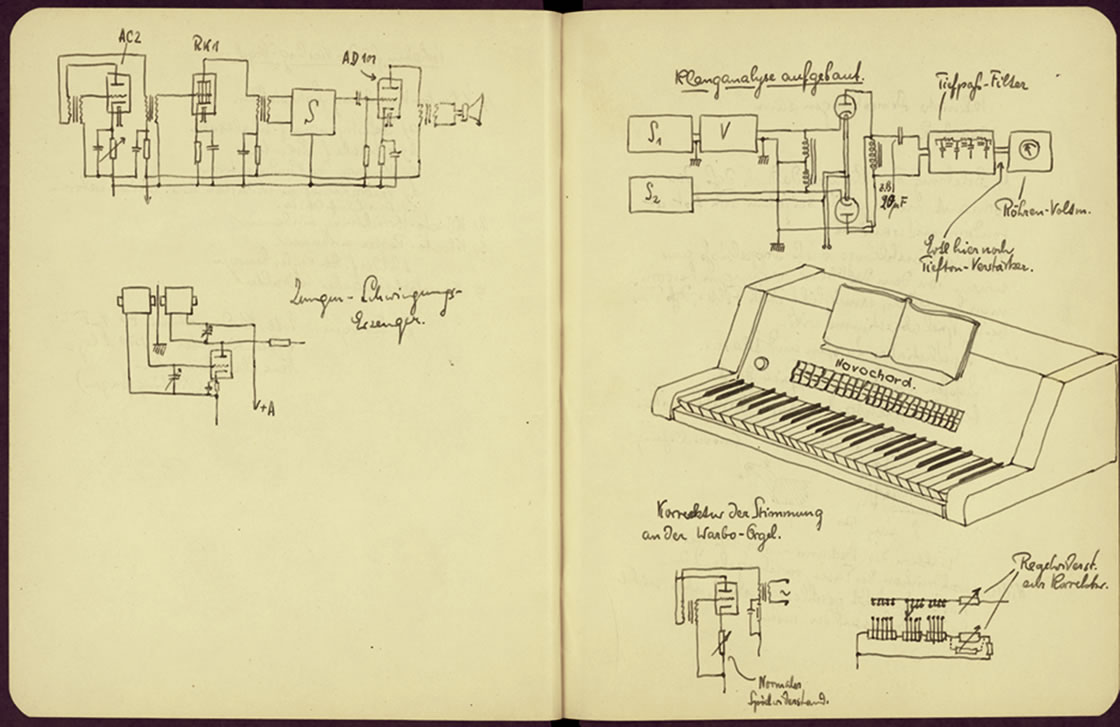 AC2
AD101
S
Zungen-Schwingungs-
Erzeuger.
+A
Klanganalyse aufgebaut.
Tiefpaß-Filter
S1
V
S2
20µF
Röhren-Voltm.
hier noch
Tiefton-Verstärker.
Novochord.
Korrektur der Stimmung
an der Warbo-Orgel.
Regelwiderst.
Korrektur.
Normaler
Spielwiderstand.